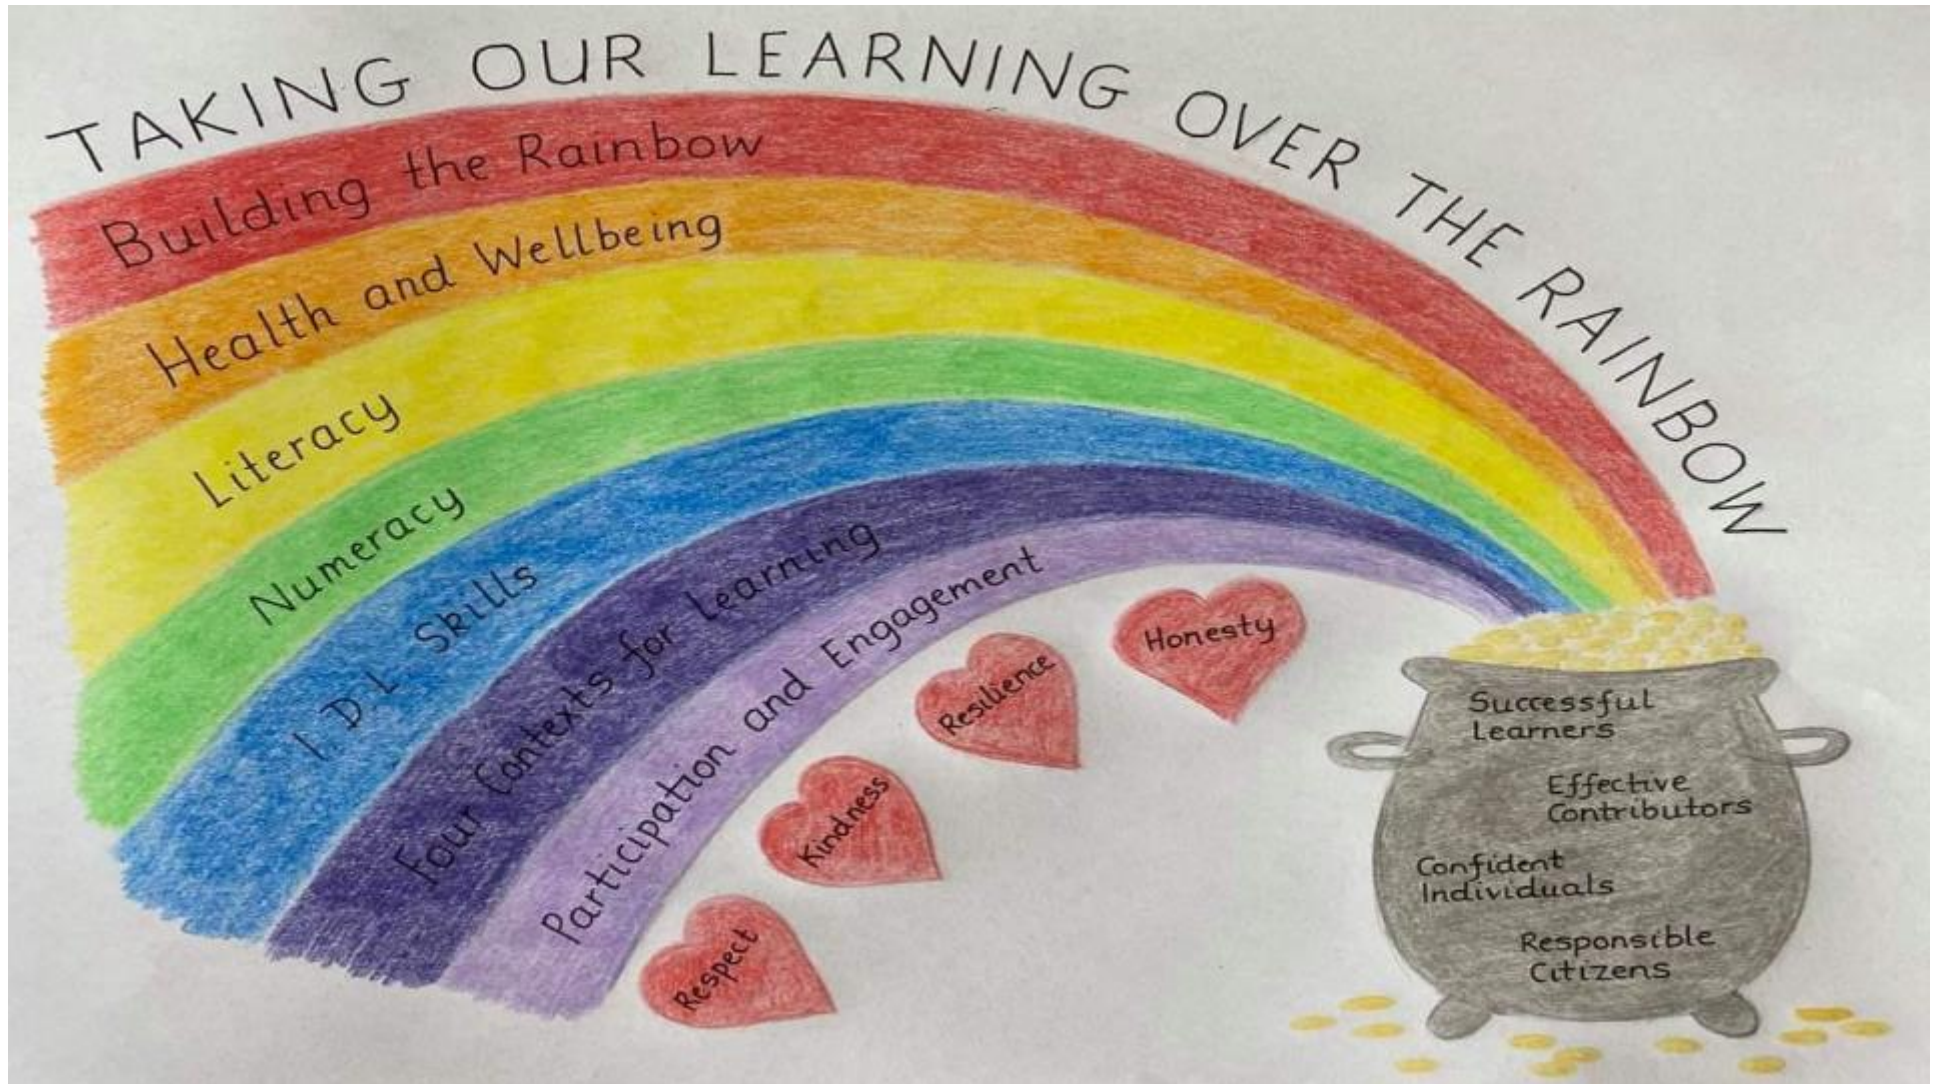 TAKING OUR LEARNING OVER THE RAINBOW
Building the Rainbow
Health and Wellbeing
Literacy
Numeracy
I D L Skills
Four Contexts for Learning
Participation and Engagement
Respect
Kindness
Resilience
Honesty
Successful
Learners
Effective
Contributors
Confident
Individuals
Responsible
Citizens